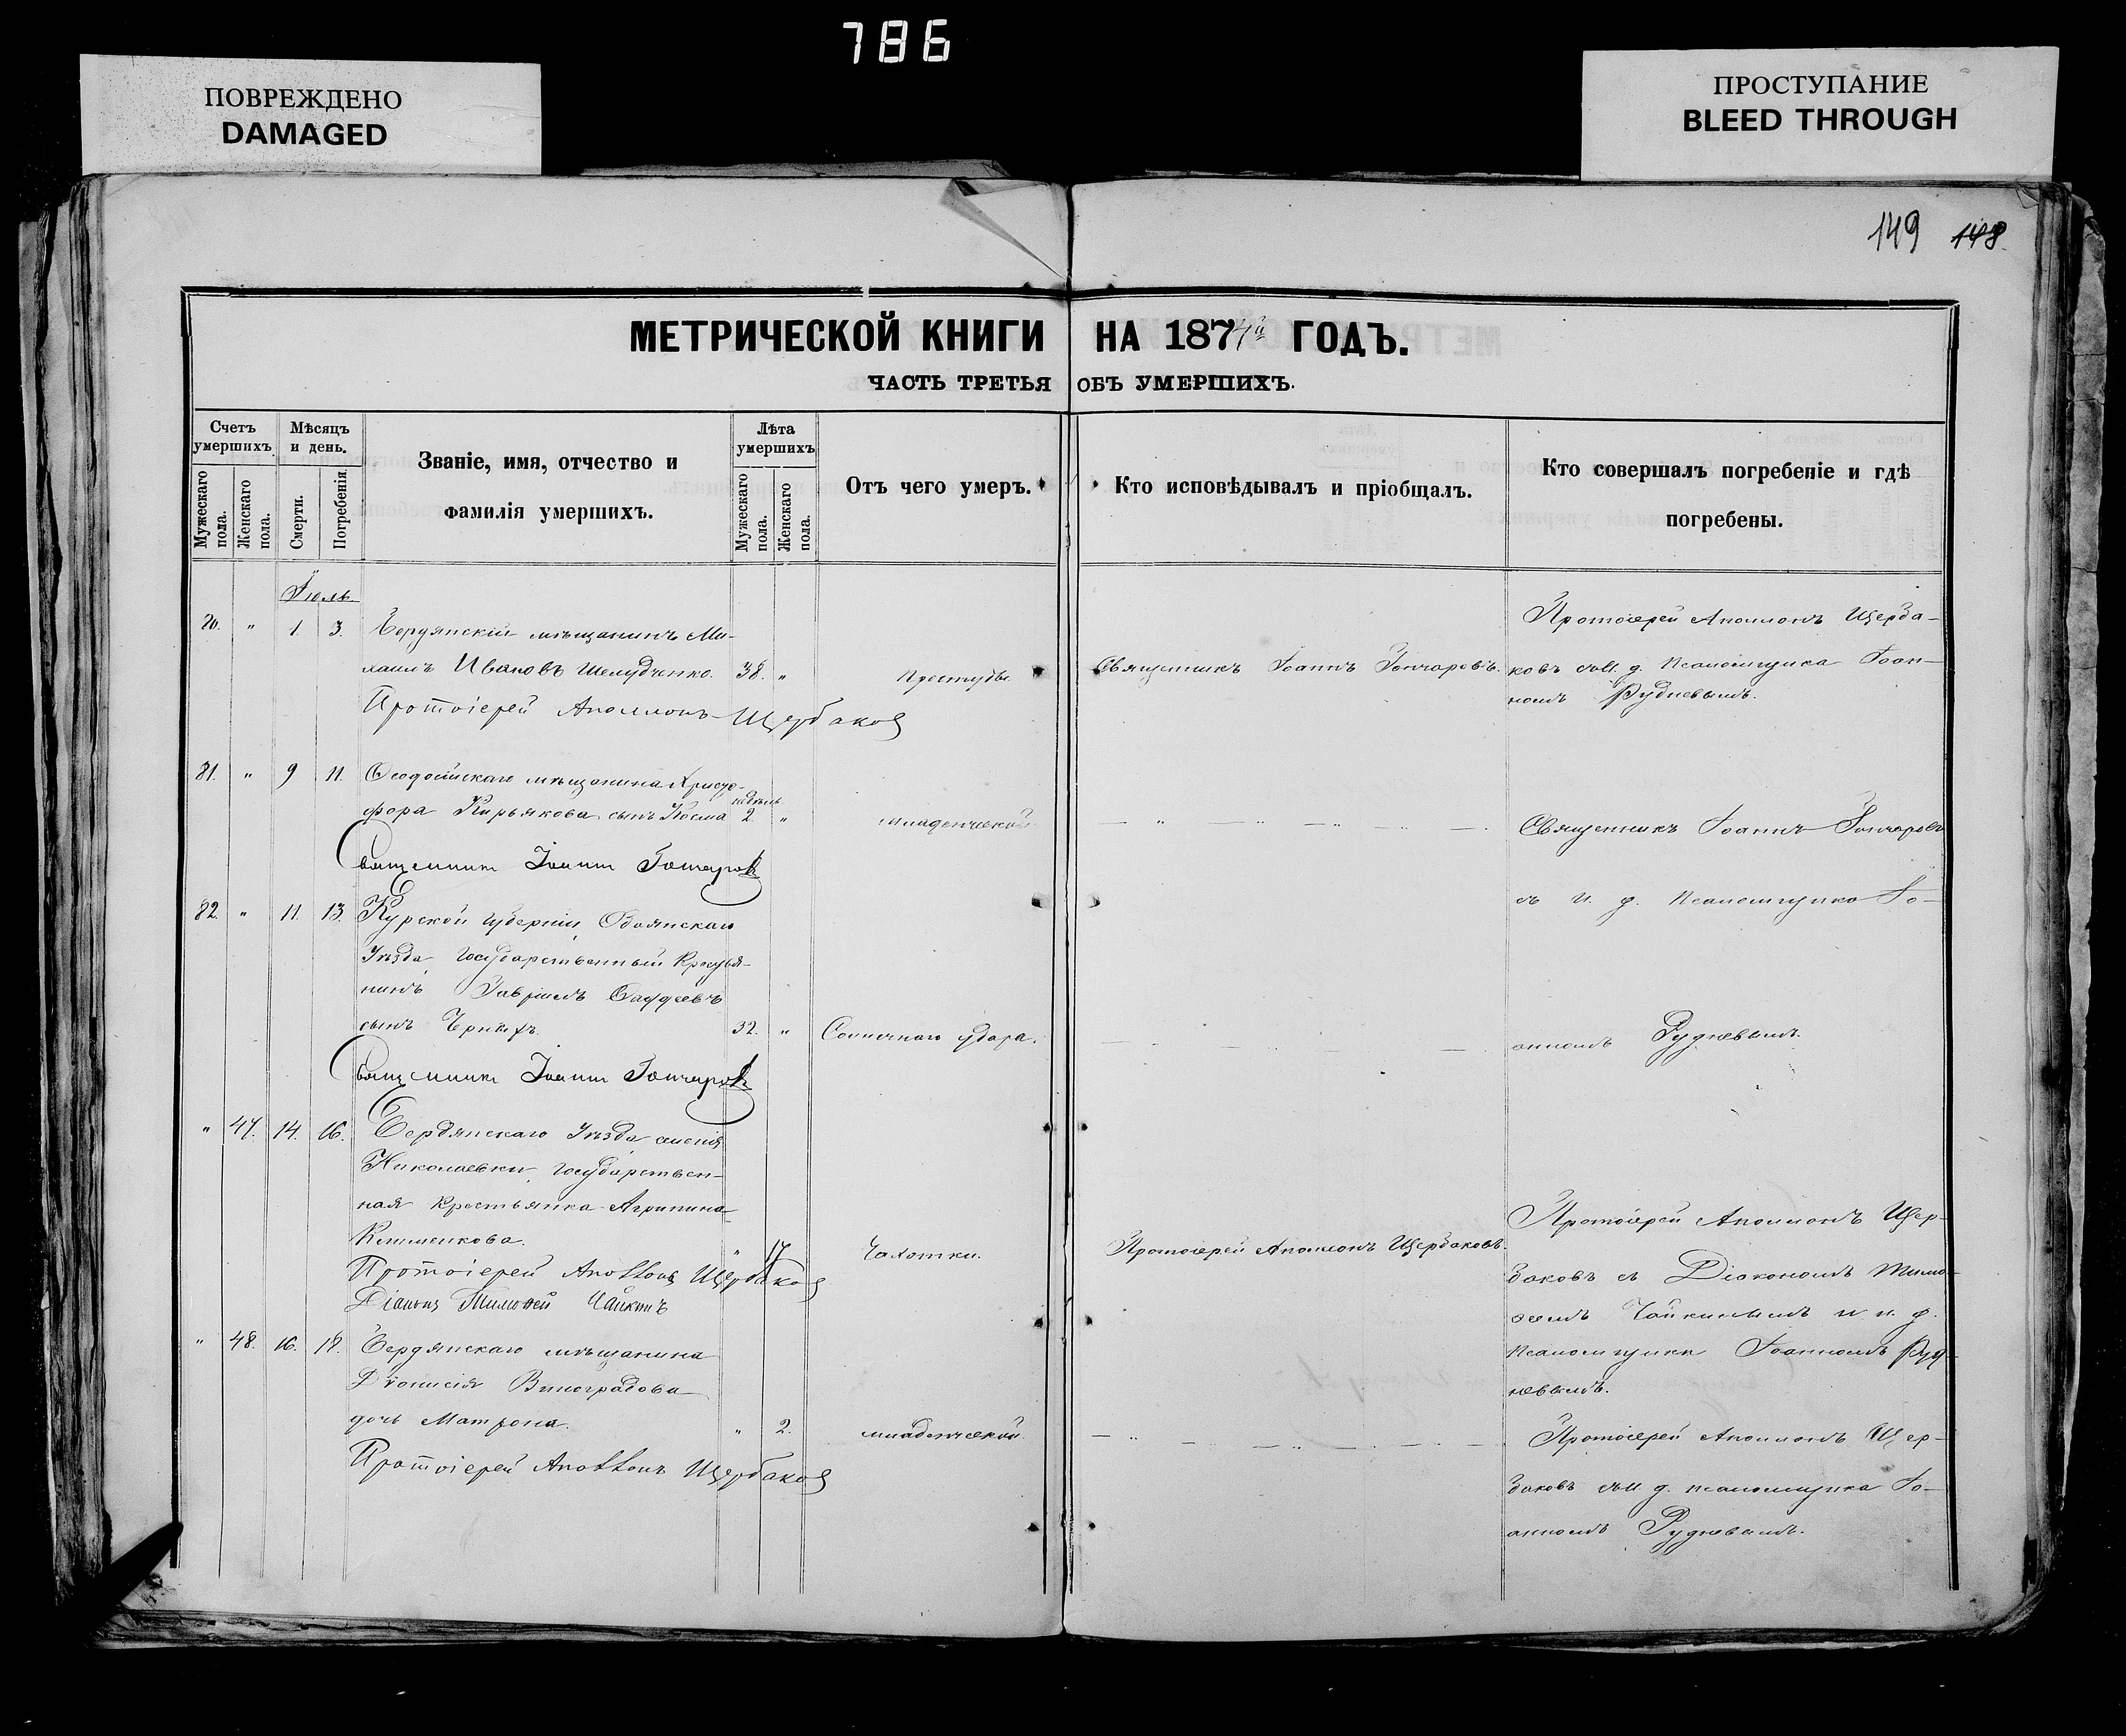 786
ПОВРЕЖДЕНО
DAMAGED
ПРОСТУПАНИЕ
BLEED THROUGH
149 148.
МЕТРИЧЕСКОЙ КНИГИ НА 1874й ГОДЪ.
ЧАСТЬ ТРЕТЬЯ ОБЪ УМЕРШИХЪ.
Счетъ умершихъ.
Мужескаго пола.
Женскаго пола.
Мѣсяцъ и день.
Смерти.
Погребенія
Званіе, имя, отчество и
фамилія умершихъ.
Лѣта умершихъ
Мужескаго пола.
Женскаго пола.
Отъ чего умеръ.
Кто исповѣдывалъ и пріобщалъ.
Кто совершалъ погребеніе и гдѣ
погребены.
Іюль
" 1. 3. Бердянскій мѣщанинъ Ми-
хаилъ Ивановъ Шелудченко. 38. " Простуды
Священникъ Іоаннъ Гончаровъ.
Протоіерей Аполлонъ Щерба-
ковъ съ И. д. Псаломщика Іоан-
номъ Рудневымъ.
Протоіерей Аполлонъ Щербаковъ
81. " 9 11. Ѳеодосійскаго мѣщанина Христо-
фора Кирьякова сынъ Косма 2 недѣль " младенческой
Священникъ Іоаннъ Гончаровъ
Священникъ Іоаннъ Гончаровъ
съ И. д. Псаломщика Іо-
анномъ Рудневымъ.
82. " 11. 13. Курской губерніи, Обоянскаго
Уѣзда, государственный крестья-
нинъ Гавріилъ Фаддеевъ
сынъ Черныхъ. 32. " Солнечнаго удара.
Священникъ Іоаннъ Гончаровъ
" 47. 14. 16. Бердянскаго Уѣзда, селенія
Николаевки, государствен-
ная крестьянка Агрипина
Клименкова. " 17 Чахотки.
Протоіерей Аполлонъ Щербаковъ.
Протоіерей Аполлонъ Щер-
баковъ съ Діакономъ Тимо-
ѳеемъ Чайкинымъ и и. д.
Псаломщика Іоанномъ Руд-
невымъ.
Протоіерей Аполлонъ Щербаковъ
Діаконъ Тимоѳей Чайкинъ
" 48. 16. 18. Бердянскаго мѣщанина
Діонисія Виноградова
дочь Матрона. " 2. младенческой
Протоіерей Аполлонъ Щер-
баковъ съ И. д. псаломщика Іо-
анномъ Рудневымъ.
Протоіерей Аполлонъ Щербаковъ